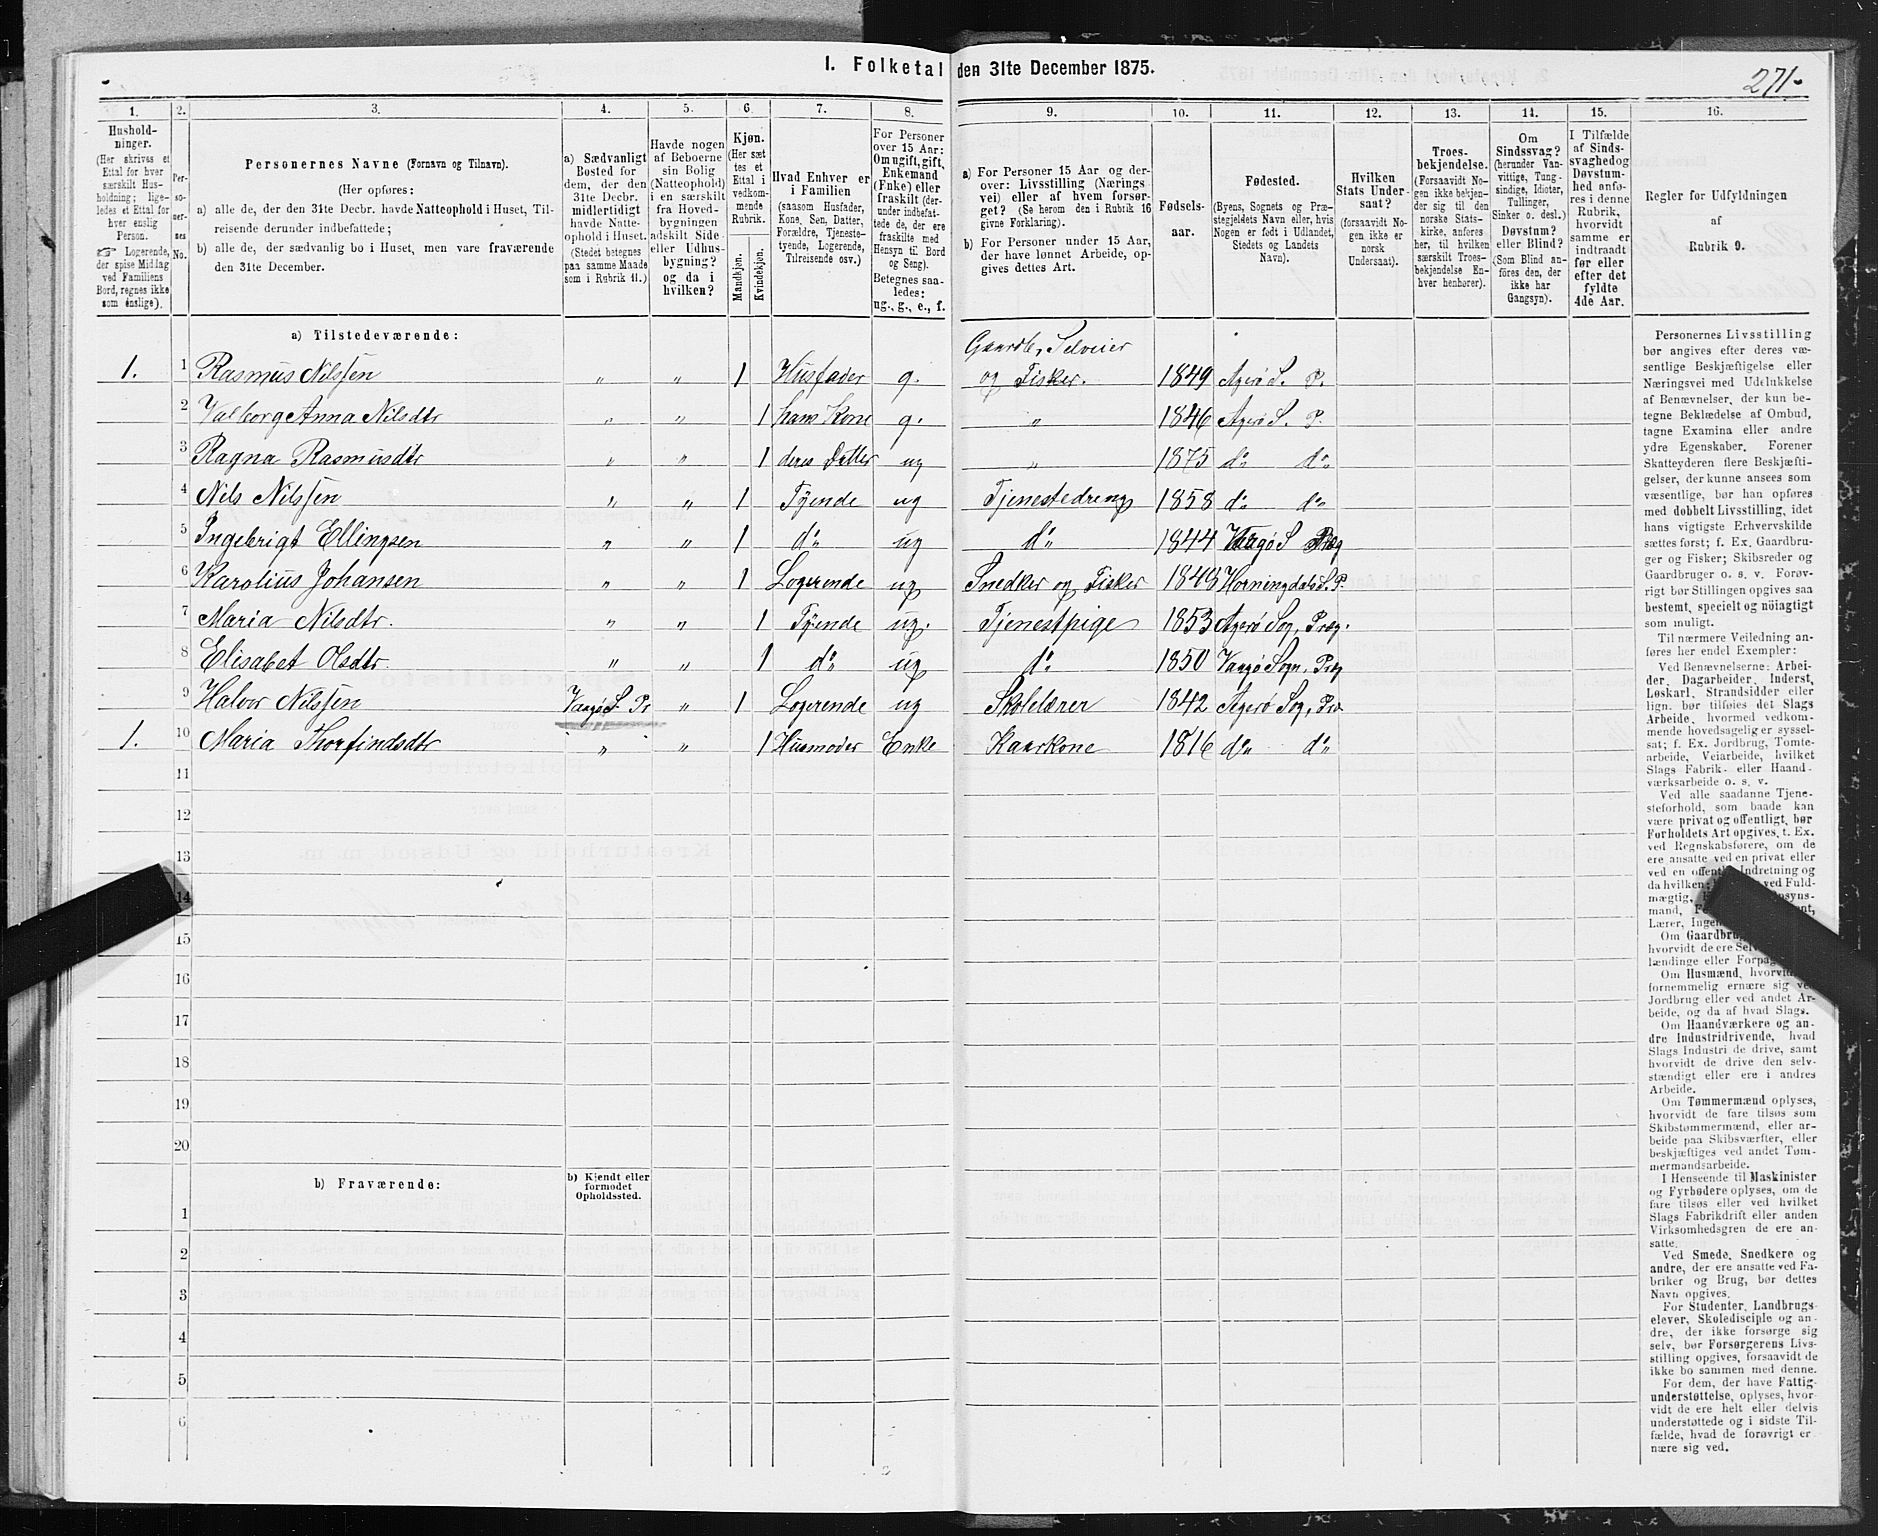 1. Folketal den 31te December 1875.
271.
1. 2. 3. 4. 5. 6. 7. 8. 9. 10. 11. 12. 13. 14. 15. 16.
Hushold-
ninger.
(Her skrives et
Ettal for hver
særskilt Hus-
holdning; lige-
ledes et Ettal for
hver enslig
Person.
☞ Logerende,
der spise Middag
ved Familiens
Bord, regnes ikke
som enslige).
Per-
so-
ner-
nes
No.
Personernes Navne (Fornavn og Tilnavn).
(Her opføres:
a) alle de, der den 31te Decbr. havde Natteophold i Huset, Til-
reisende derunder indbefattede;
b) alle de, der sædvanlig bo i Huset, men vare fraværende
den 31te December.
a) Sædvanligt
Bosted for
dem, der den
31te Decbr.
midlertidigt
havde Natte-
ophold i Huset.
(Stedet betegnes
paa samme Maade
som i Rubrik 11.)
Havde nogen
af Beboerne
sin Bolig
(Natteophold)
i en særskilt
fra Hoved-
bygningen
adskilt Side-
eller Udhus-
bygning?
og da i
hvilken?
Kjøn.
(Her sæt
tes et
Ettal i
vedkom-
mende
Rubrik.
Mandkjøn.
Kvindekjøn.
Hvad Enhver er
i Familien
(saasom Husfader,
Kone, Søn, Datter,
Forældre, Tjeneste-
tyende, Logerende,
Tilreisende osv.)
For Personer
over 15 Aar:
Om ugift, gift,
Enkemand
(Enke) eller
fraskilt (der-
under indbefat-
tede de, der ere
fraskilte med
Hensyn til Bord
og Seng).
Betegnes saa-
ledes:
ug., g., e., f.
a) For Personer 15 Aar og der-
over: Livsstilling (Nærings-
vei) eller af hvem forsør-
get? (Se herom den i Rubrik 16
givne Forklaring).
b) For Personer under 15 Aar,
der have lønnet Arbeide, op-
gives dettes Art.
Fødsels-
aar.
Fødested.
(Byens, Sognets og Præ-
stegjeldets Navn eller, hvis
Nogen er født i Udlandet,
Stedets og Landets
Navn).
Hvilken
Stats Under-
saat?
(forsaavidt No-
gen ikke er
norsk
Undersaat).
Troes-
bekjendelse.
(Forsaavidt No-
gen ikke bekjen-
der sig til den
norske Stats-
kirke, anføres
her, til hvilken
særskilt Troes-
bekjendelse En-
hver henhører).
Om
Sindssvag?
(herunder Van-
vittige, Tung-
sindige, Idioter,
Tullinger,
Sinker o. desl.)
Døvstum?
eller Blind?
(Som Blind an-
føres den, der
ikke har
Gangsyn).
I Tilfælde
af Sinds-
svaghed og
Døvstum-
hed anfø-
res i denne
Rubrik,
hvorvidt
samme er
indtraadt
før eller
efter det
fyldte
4de Aar.
Regler for Udfyldningen
af
Rubrik 9.
a) Tilstedeværende:
Gaardb, Selveier
1. 1 Rasmus Nilssen „ „ 1 Husfader g. og Fisker. 1849 Agerø S. P.
2 Valborg Anna Nilsdtr „ „ 1 hans Kone g. „ 1846 Agerø S. P.
3 Ragna Rasmusdtr „ „ 1 deres Datter ug „ 1875 do do
4 Nils Nilssen „ „ 1 Tyende ug Tjenestedreng 1858 do do
5 Ingebrigt Ellingsen „ „ 1 do ug do 1844 Vaagø S Præg
6 Karolius Johansen „ „ 1 Logerende ug Snedker og Fisker 1848 Horningdals S. P.
7 Maria Nilsdtr. „ „ 1 Tyende ug. Tjenestpige 1853 Agerø Sog, Præg.
8 Elisabet Olsdtr. „ „ 1 do ug do 1850 Vaagø Sogn, Præg
9 Halvor Nilssen Vaagø S. Pr „ 1 Logerende ug Skolelærer 1842 Agerø Sog, Præ
1. 10 Maria Thorfindsdtr „ „ 1 Husmoder Enke Kaarkone 1816 do do
11
12
13
14
15
16
17
18
19
20
b) Fraværende:
b) Kjendt eller
formodet
Opholdssted.
1
2
3
4
5
6
Personernes Livsstilling
bør angives efter deres væ-
sentlige Beskjæftigelse eller
Næringsvei med Udelukkelse
af Benævnelser, der kun be-
tegne Beklædelse af Ombud,
tagne Examina eller andre
ydre Egenskaber. Forener
Skatteyderen flere Beskjæfti-
gelser, der kunne ansees som
væsentlige, bør han opføres
med dobbelt Livsstilling, idet
hans vigtigste Erhvervskilde
sættes først; f. Ex. Gaardbru-
ger og Fisker; Skibsreder og
Gaardbruger o. s. v. Forøv-
rigt bør Stillingen opgives saa
bestemt, specielt og nöiagtigt
som muligt.
Til nærmere Veiledning an-
føres her endel Exempler:
Ved Benævnelserne: Arbei-
der, Dagarbeider, Inderst,
Løskarl, Strandsidder eller
lign. bør tilføies det Slags
Arbeide, hvormed vedkom-
mende hovedsagelig er syssel-
sat; f. Ex. Jordbrug, Tomte-
arbeide, Veiarbeide, hvilket
Slags Fabrik- eller Haand-
værksarbeide o. s. v.
Ved alle saadanne Tjene-
steforhold, som baade kan
være privat og offentligt, bør
Forholdets Art opgives, t. Ex.
ved Regnskabsførere, om de
ere ansatte ved en privat eller
ved en offent Indretning og
da hvilken; ved Fuld-
mægtig, psyns-
mand, nt,
Lærer, Inge
Om Gaardbrug
hvorvidt de ere Sel
lændinge eller Forpag
Om Husmænd, hvorvidt
fornemmelig ernære sig ved
Jordbrug eller ved andet Ar-
beide, og da af hvad Slags.
Om Haandværkere og an-
dre Industridrivende, hvad
Slags Industri de drive, samt
hvorvidt de drive den selv-
stændigt eller ere i andres
Arbeide.
Om Tømmermænd oplyses,
hvorvidt de fare tilsøs som
Skibstømmermænd, eller ar-
beide paa Skibsværfter, eller
beskjæftiges ved andet Tøm-
mermandsarbeide.
I Henseende til Maskinister
og Fyrbødere oplyses, om de
fare tilsøs eller ved hvilket
Slags Fabrikdrift eller anden
Virksomhedsgren de ere an-
satte.
Ved Smede, Snedkere og
andre, der ere ansatte ved Fa-
briker og Brug, bør dettes
Navn opgives.
For Studenter, Landbrugs-
elever, Skoledisciple og an-
dre, der ikke forsørge sig
selv, bør Forsørgerens Livs-
stilling opgives, forsaavidt de
ikke bo sammen med denne.
For dem, der have Fattig-
understøttelse, oplyses, hvor-
vidt de ere helt eller delvis
understøttede og i sidste Til-
fælde, hvad de forøvrigt er-
nære sig ved.